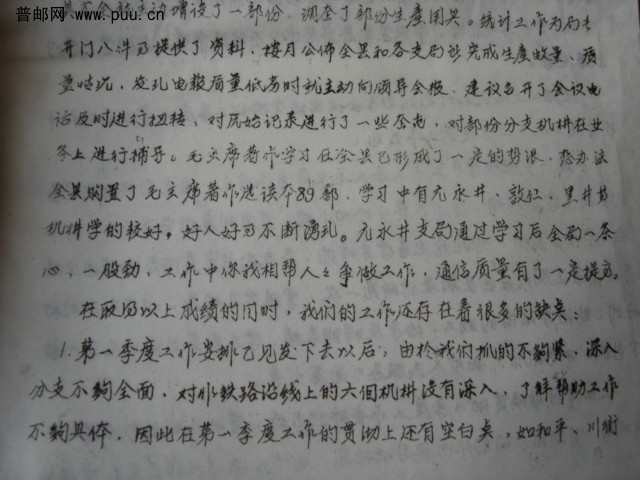 普邮网 www.puu.cn
主动增设了一部份,调查了部份生产用具。统计工作为局长
开门八件了提供了资料,按月公佈全县和各支局所完成生产数量、质
量情况,发现电报质量低劣时就主动向领导会报,建议召开了会议电
话及时进行扭转,对原始记录进行了一些查对,对部份分支机构在业
务上进行辅导。毛主席著作学习在全县已形成了一定的势,想办法
全县购置了毛主席著作选读本89部,学习中有元永井、敦仁、黑井等
机构学的较好,好人好了不断涌现。元永井支局通过学习后全局一条
心,一股劲,工作中你找相帮人々争做工作,通信质量有了一定提高。
在取得以上成绩的同时,我们的工作还存在着很多的缺点:
1.第一季度工作安排已见发下去以后,由於我们抓的不夠紧,深入
分支不夠全面,对水铁路沿线上的六個机构没有深入,了解帮助工作
不夠具体,因此在第一季度工作的贯彻上还有空白点,如和平、川街